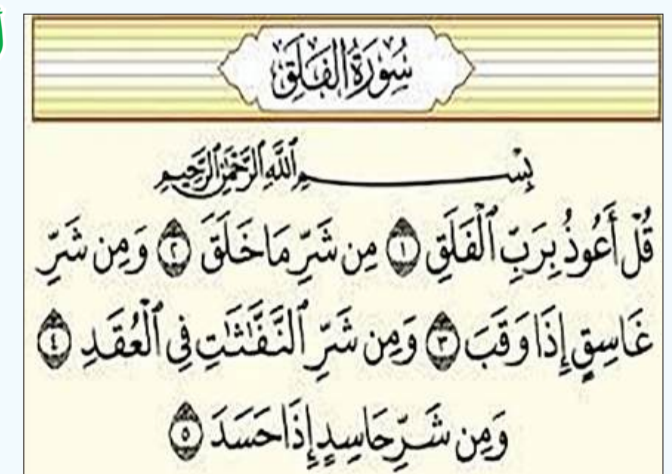 سُورَةُ الْفَلَقِ
بِسْمِ اللَّهِ الرَّحْمَٰنِ الرَّحِيمِ
قُلْ أَعُوذُ بِرَبِّ ٱلْفَلَقِ ١ مِن شَرِّ مَا خَلَقَ ٢ وَمِن شَرِّ
غَاسِقٍ إِذَا وَقَبَ ٣ وَمِن شَرِّ ٱلنَّفَّٰثَٰتِ فِى ٱلْعُقَدِ ٤
وَمِن شَرِّ حَاسِدٍ إِذَا حَسَدَ ٥